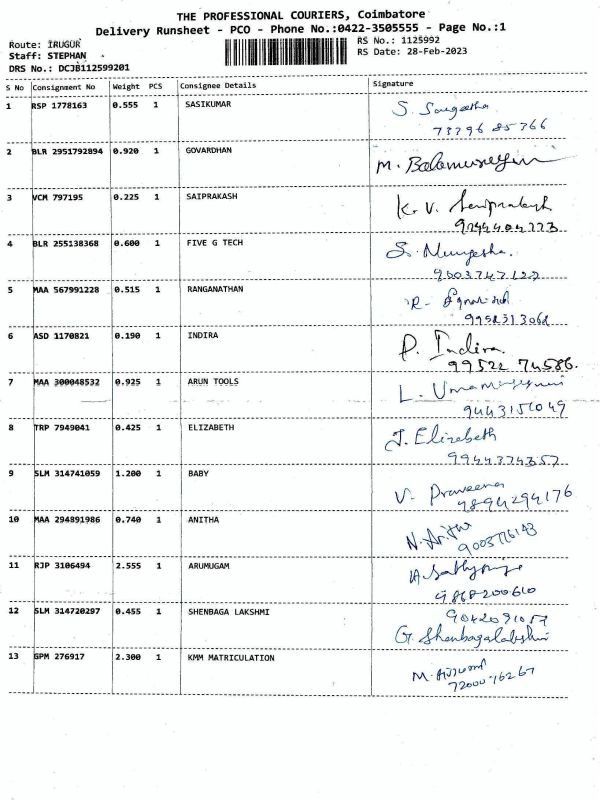 THE PROFESSIONAL COURIERS, Coimbatore
Delivery Runsheet - PCO - Phone No.:0422-3505555 - Page No.:1
Route: IRUGUR
RS No.: 1125992
Staff: STEPHAN
RS Date: 28-Feb-2023
DRS No.: DCJB112599201
S No Consignment No Weight PCS Consignee Details Signature
1 RSP 1778163 0.555 1 SASIKUMAR S. Sangeetha
73396 85366
2 BLR 2951792894 0.920 1 GOVARDHAN M.
3 VCM 797195 0.225 1 SAIPRAKASH K. V. Saiprakash
9244404773
4 BLR 255138368 0.600 1 FIVE G TECH S. Murugesha.
9003747127
5 MAA 567991228 0.515 1 RANGANATHAN R.
9952313062
6 ASD 1170821 0.190 1 INDIRA P. Indira
99522 74586.
7 MAA 300048532 0.925 1 ARUN TOOLS L.
9443151049
8 TRP 7949041 0.425 1 ELIZABETH J. Elizabeth
9944374357
9 SLM 314741059 1.200 1 BABY V. Praveena
9894294176
10 MAA 294891986 0.740 1 ANITHA N. Anitha
11 RJP 3106494 2.555 1 ARUMUGAM
9868200610
12 SLM 314720297 0.455 1 SHENBAGA LAKSHMI 9042091057
G. Shenbagalakshmi
13 GPM 276917 2.300 1 KMM MATRICULATION M.
72000 76267